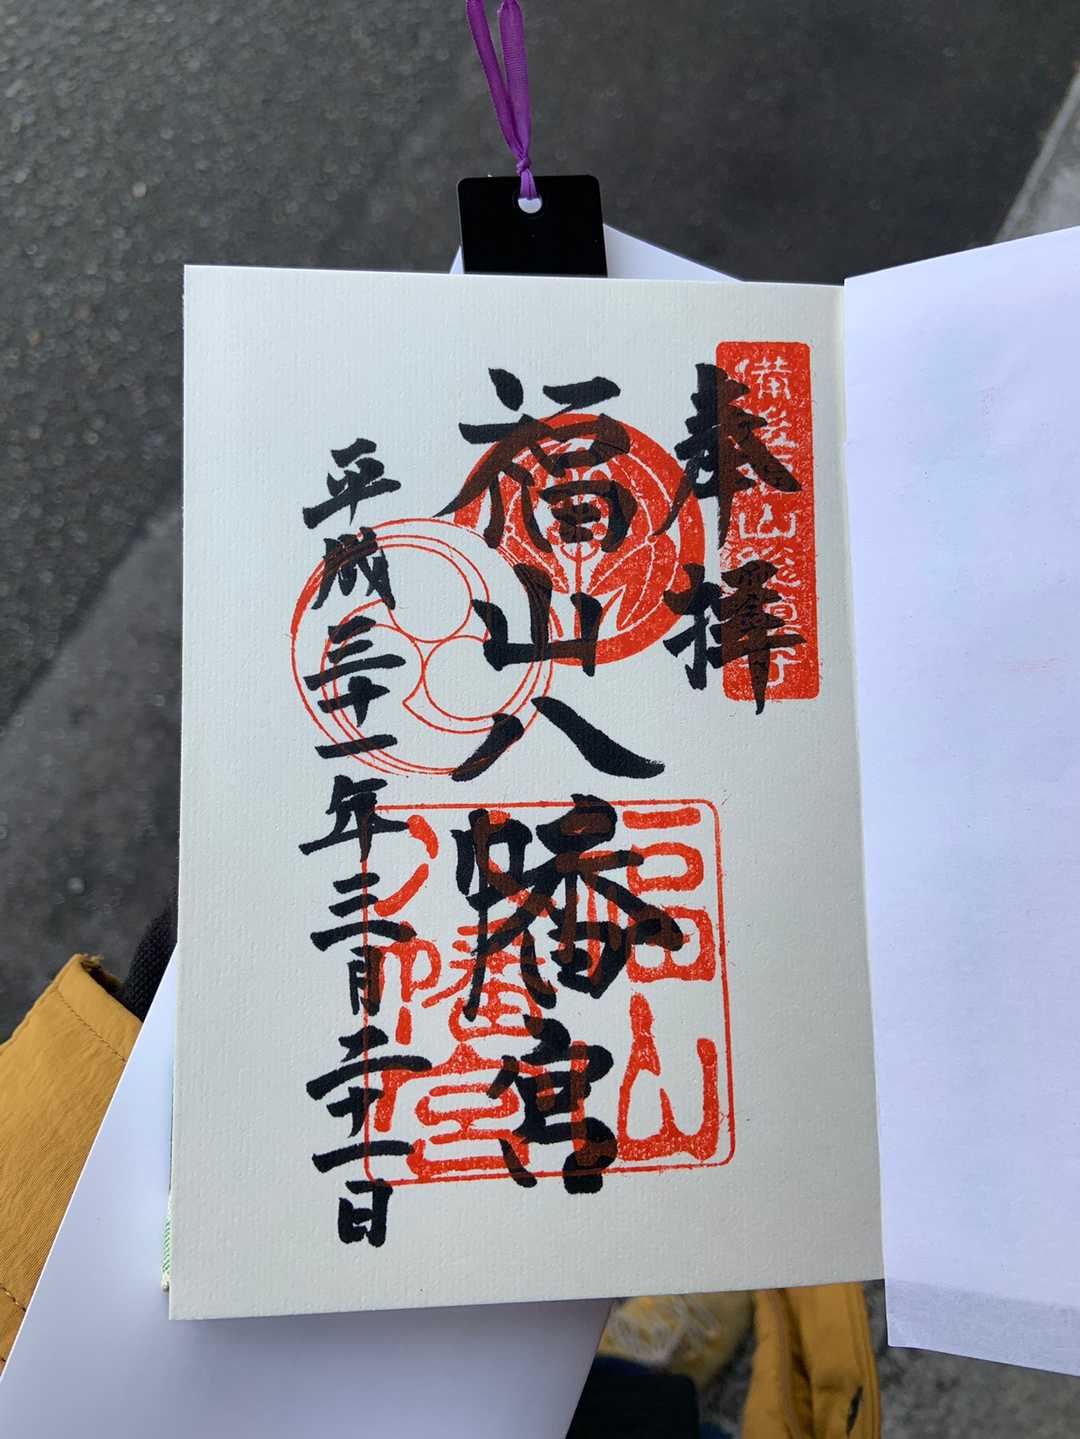 備後福山総鎮守
奉拝
福山八幡宮
福山
八幡宮
平成三十一年三月二十一日